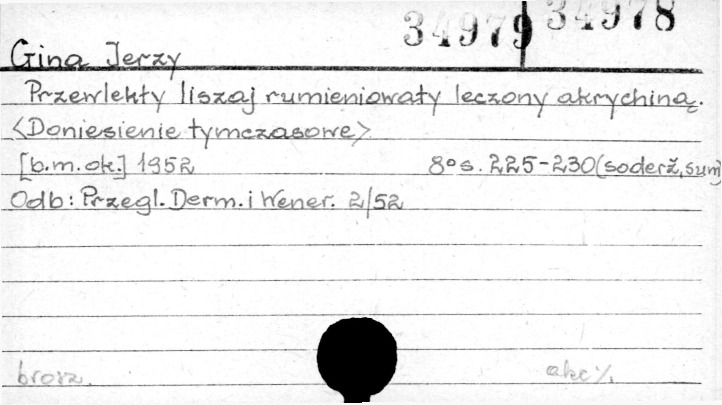 34979 34978
Gina Jerzy
Przewlekły liszaj rumieniowaty leczony akrychiną.
<Doniesienie tymczasowe>
[b.m.ok.] 1952 8° s. 225-230 (soderž, sum)
Odb: Przegl. Derm. i Wener. 2/52
brosz. akc %.